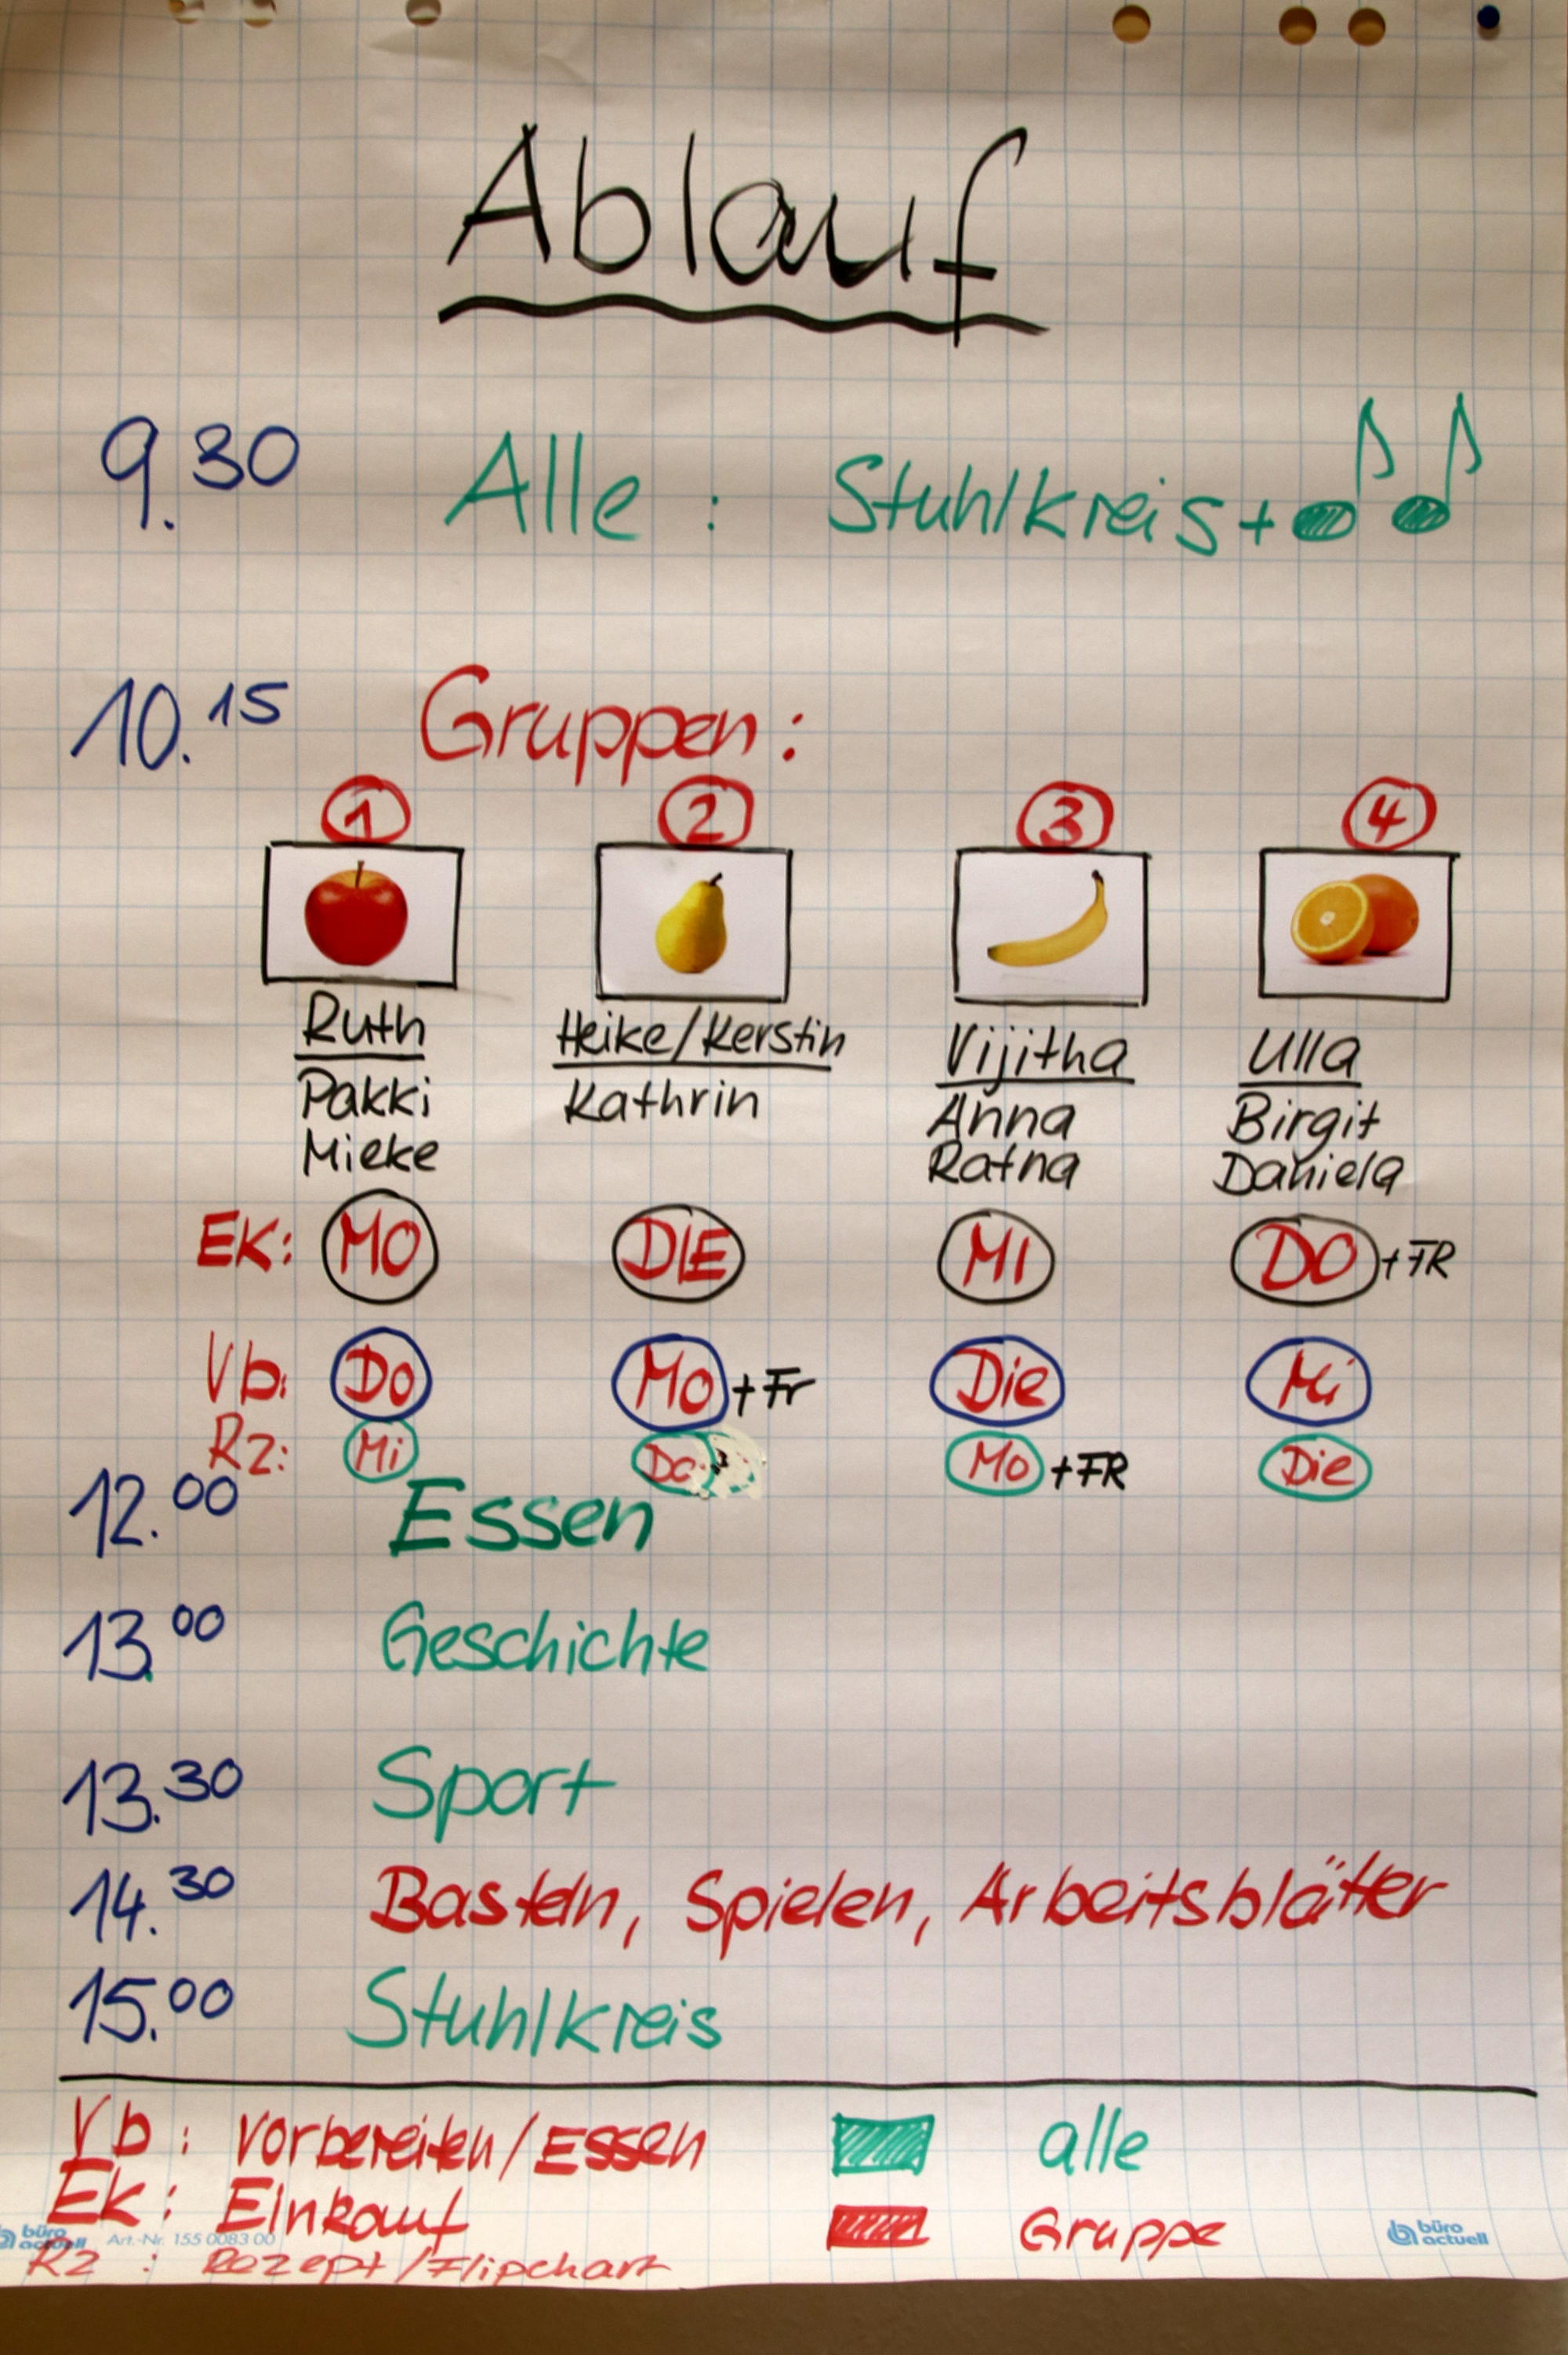 Ablauf
9.30 Alle : Stuhlkreis +
10.15 Gruppen:
1 2 3 4
Ruth Heike/Kerstin Vijitha Ulla
Pakki Kathrin Anna Birgit
Mieke Ratna Daniela
EK: MO DIE MI DO + FR
Vb: Do Mo + Fr Die Mi
Rz: Mi Do Mo + FR Die
12.00 Essen
13.00 Geschichte
13.30 Sport
14.30 Basteln, Spielen, Arbeitsblätter
15.00 Stuhlkreis
Vb : Vorbereiten/Essen alle
Ek : Einkauf Gruppe
büro actuell Art.-Nr. 155 0083 00 büro actuell
Rz : Rezept/Flipchart